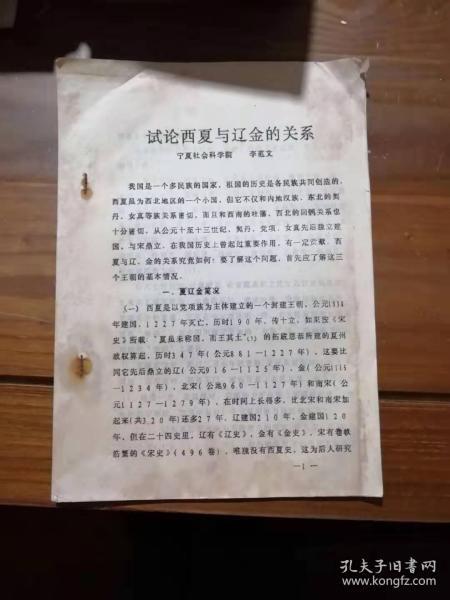 试论西夏与辽金的关系
宁夏社会科学院 李范文
我国是一个多民族的国家，祖国的历史是各民族共同创造的，
西夏虽为西北地区的一个小国，但它不仅和内地汉族、东北的契
丹、女真等族关系密切，而且和西南的吐蕃、西北的回鹘关系也
十分密切，从公元十至十三世纪，契丹、党项、女真先后独立建
国，与宋鼎立，在我国历史上曾起过重要作用，有一定贡献。西
夏与辽、金的关系究竟如何？要了解这个问题，首先应了解这三
个王朝的基本情况。
一、夏辽金简况
（一）西夏是以党项族为主体建立的一个封建王朝，公元1038
年建国，1227年灭亡，历时190年，传十主，如果按《宋
史》所载“夏虽未称国，而王其土”(1)的拓跋思恭所建的夏州
政权算起，历时347年(公元881—1227年)，这要比
同它先后鼎立的辽(公元916—1125年)、金(公元1115
—1234年)、北宋(公元960—1127年)和南宋(公
元1127—1279年)，在时间上长得多，比北宋和南宋加
起来(共320年)还多27年，辽建国210年，金建国120
年，但在二十四史里，辽有《辽史》，金有《金史》，宋有卷帙
浩繁的《宋史》(496卷)，唯独没有西夏史，这为后人研究
—1—
孔夫子旧书网
www.kongfz.com